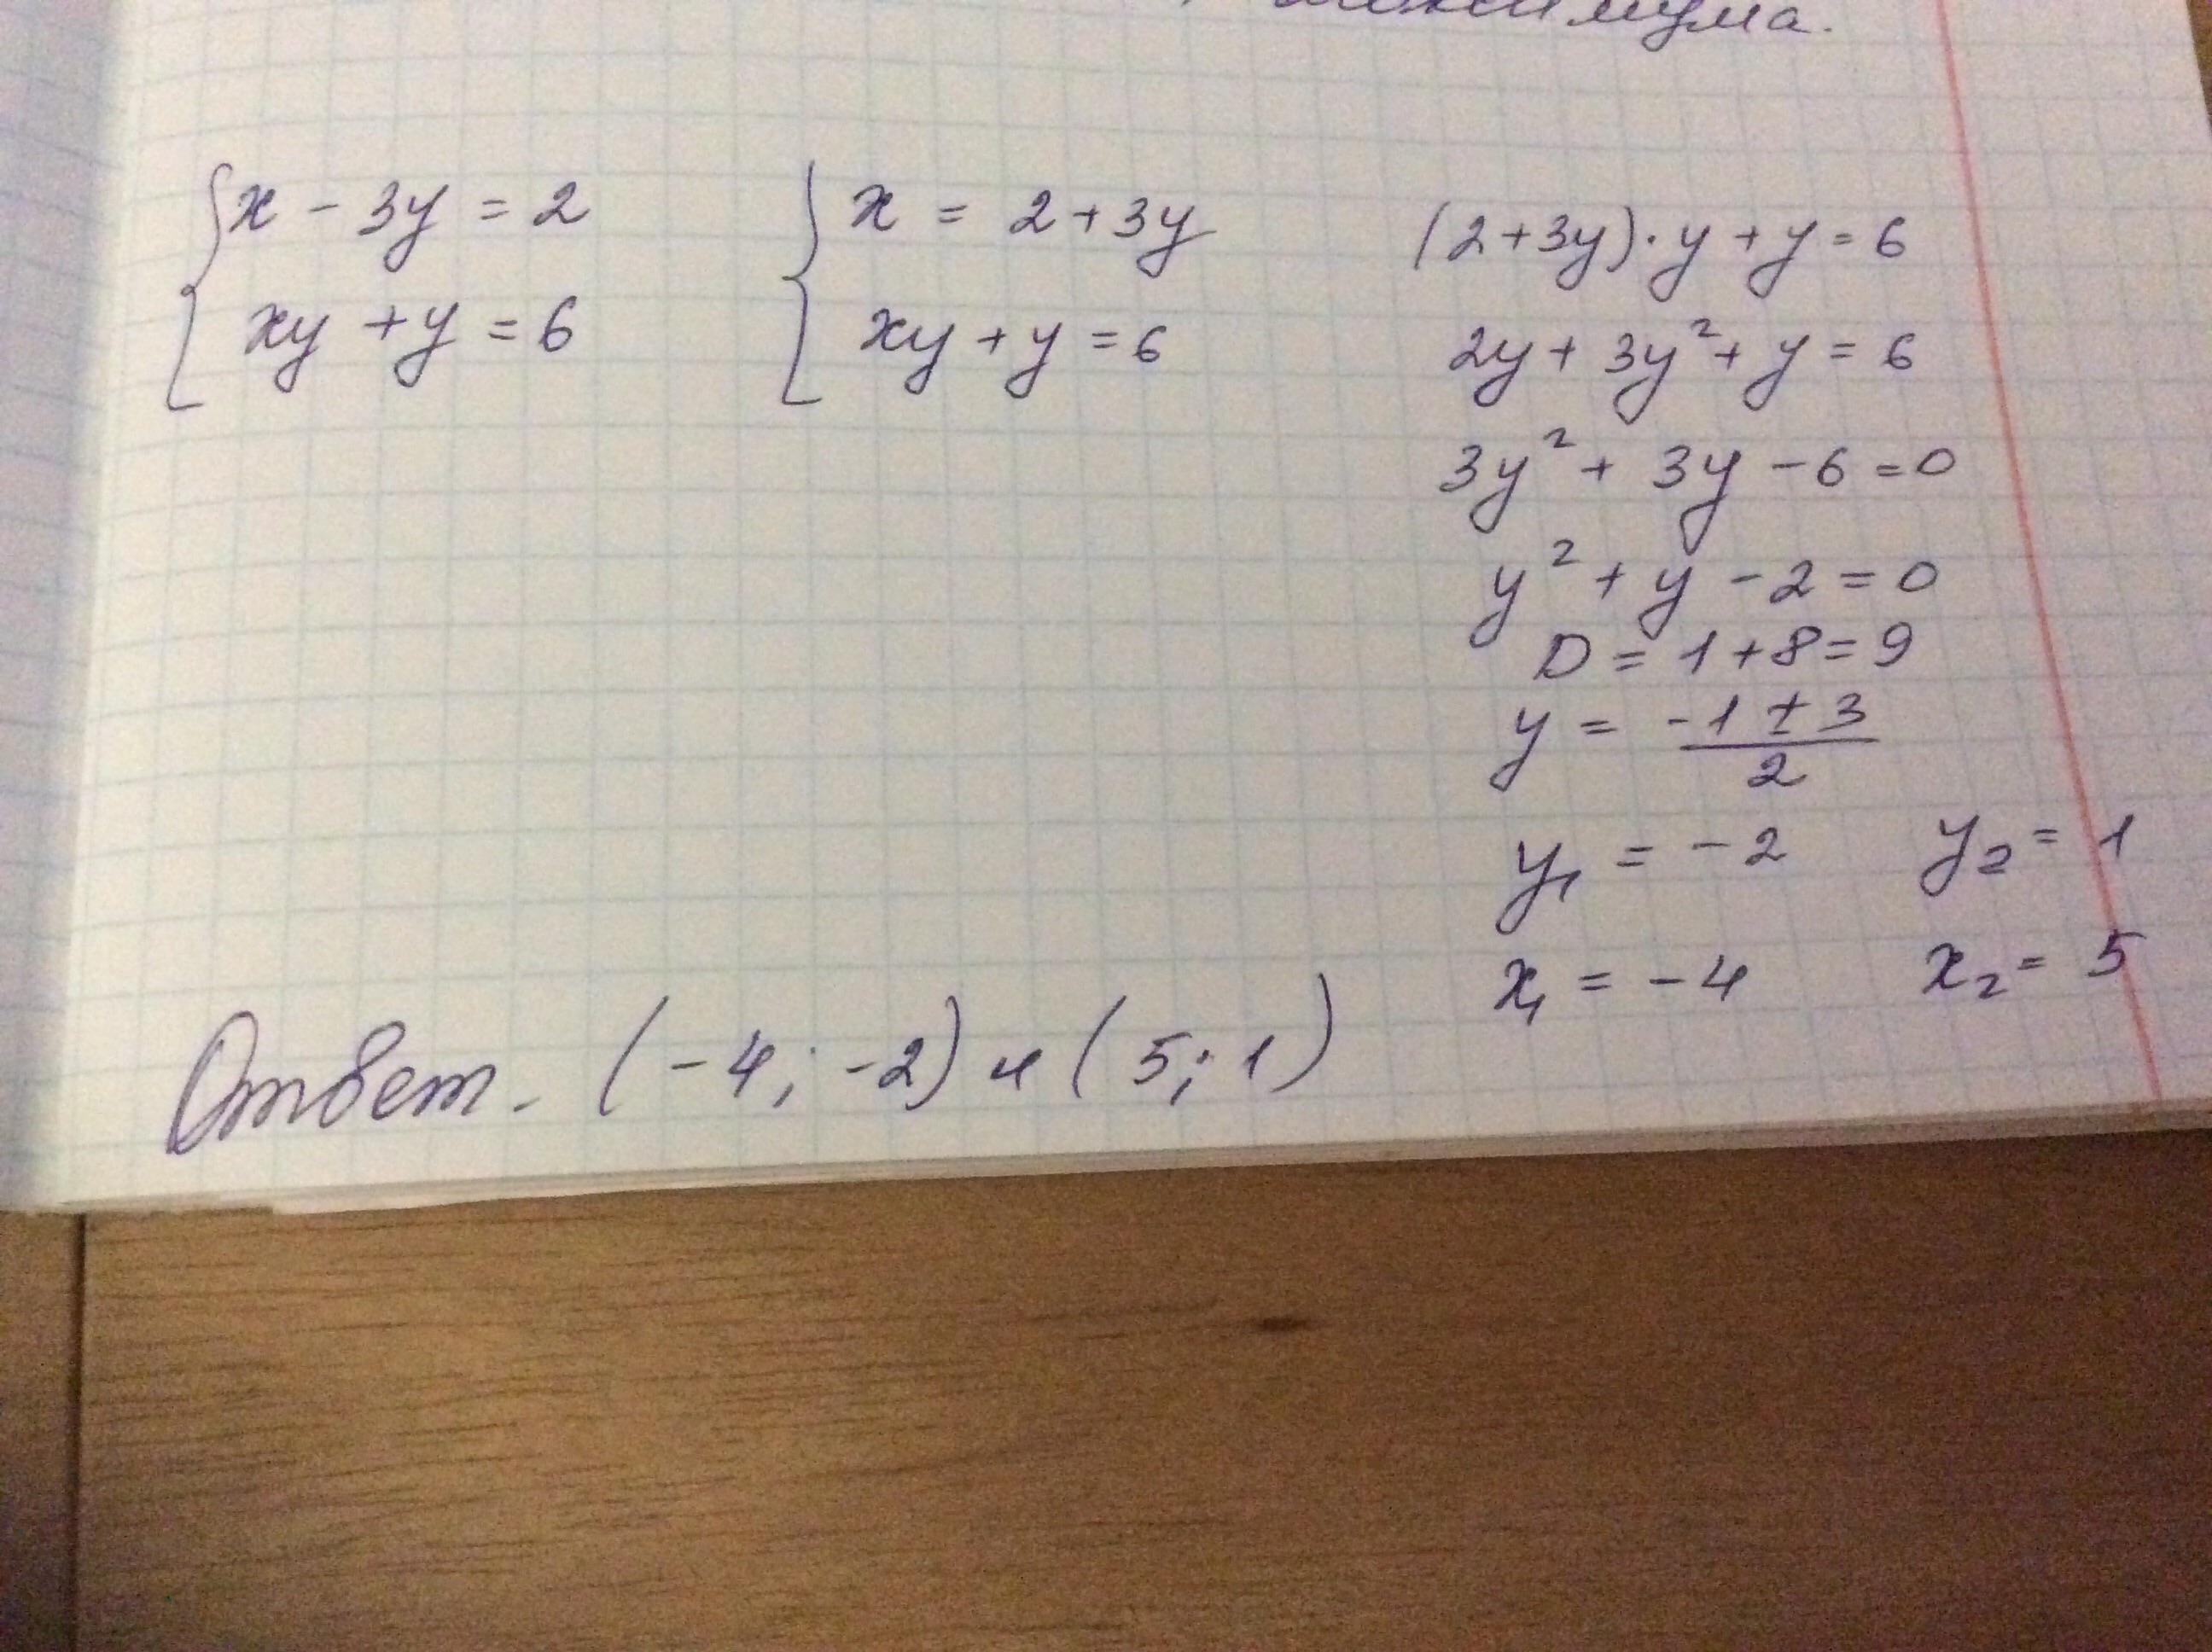 { x - 3y = 2
xy + y = 6
{ x = 2 + 3y
xy + y = 6
(2 + 3y) · y + y = 6
2y + 3y² + y = 6
3y² + 3y - 6 = 0
y² + y - 2 = 0
D = 1 + 8 = 9
y = (-1 ± 3) / 2
y₁ = -2 y₂ = 1
x₁ = -4 x₂ = 5
Ответ. (-4; -2) и (5; 1)